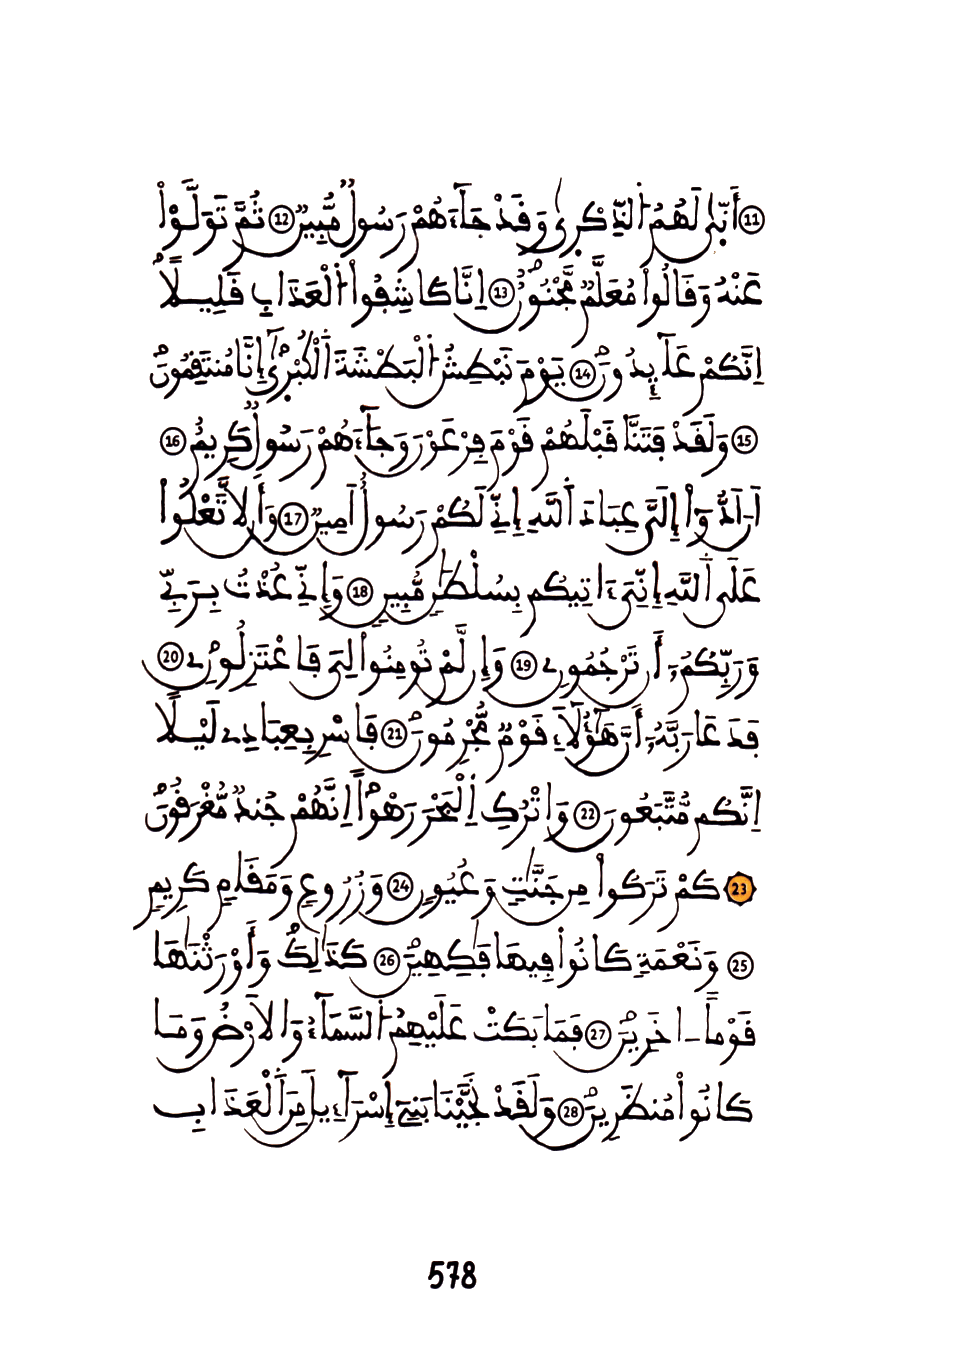 ⑪ أَنّٜي لَهُمُ اُلذِّكْر۪ىٰ وَقَدْ جَآءَهُمْ رَسُولٞ مُّبِينٞ ⑫ ثُمَّ تَوَلَّوْاْ
عَنْهُ وَقَالُواْ مُعَلَّمٞ مَّجْنُونٌ ⑬ اِنَّا كَاشِفُواْ اُلْعَذَابِ قَلِيلاًۖ
اِنَّكُمْ عَآئِدُونَۖ ⑭ يَوْمَ نَبْطِشُ اُلْبَطْشَةَ اَلْكُبْر۪ىٰٓ إِنَّا مُنتَقِمُونَۖ
⑮ وَلَقَدْ فَتَنَّا قَبْلَهُمْ قَوْمَ فِرْعَوْنَ وَجَآءَهُمْ رَسُولٞ كَرِيمٌ ⑯
اَنَ اَدُّوٓاْ إِلَيَّ عِبَادَ اَللَّهِ إِنِّي لَكُمْ رَسُولٌ اَمِينٞ ⑰ وَأَن لَّا تَعْلُواْ
عَلَي اَللَّهِ إِنِّيَ ءَاتِيكُم بِسُلْطَٰنٖ مُّبِينٖ ⑱ وَإِنِّي عُذْتُ بِرَبِّي
وَرَبِّكُمُۥٓ أَن تَرْجُمُونِۦ ⑲ وَإِن لَّمْ تُومِنُواْ لِيَ فَاعْتَزِلُونِۦ ⑳
فَدَعَا رَبَّهُۥٓ أَنَّ هَٰٓؤُلَآءِ قَوْمٞ مُّجْرِمُونَۖ 21 فَاسْرِ بِعِبَادِے لَيْلاً
اِنَّكُم مُّتَّبَعُونَ 22 وَاتْرُكِ اِلْبَحْرَ رَهْواًۖ اِنَّهُمْ جُندٞ مُّغْرَقُونَۖ
23 كَمْ تَرَكُواْ مِن جَنَّٰتٖ وَعُيُونٖ 24 وَزُرُوعٖ وَمَقَامٖ كَرِيمٖ
25 وَنَعْمَةٖ كَانُواْ فِيهَا فَٰكِهِينَۖ 26 كَذَٰلِكَۖ وَأَوْرَثْنَٰهَا
قَوْماً ـ اخَرِينَۖ 27 فَمَا بَكَتْ عَلَيْهِمُ اُلسَّمَآءُ وَالَارْضُ وَمَا
كَانُواْ مُنظَرِينَۖ 28 وَلَقَدْ نَجَّيْنَا بَنِيٓ إِسْرَآءِيلَ مِنَ اَلْعَذَابِ
578